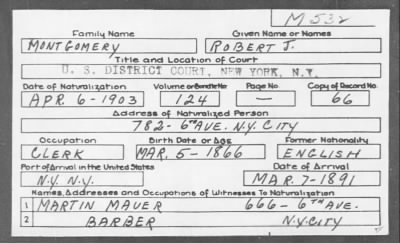 M532
Family Name Given Name or Names
MONTGOMERY ROBERT J.
Title and Location of Court
U. S. DISTRICT COURT, NEW YORK, N.Y.
Date of Naturalization Volume or Bundle No Page No Copy of Record No
APR. 6-1903 124 — 66
Address of Naturalized Person
782- 6TH AVE. N.Y. CITY
Occupation Birth Date or Age Former Nationality
CLERK MAR. 5-1866 ENGLISH
Port of Arrival in the United States Date of Arrival
N.Y. N.Y. MAR. 7-1891
Names, Addresses and Occupations of Witnesses To Naturalization
1 MARTIN MAUER 666- 6TH AVE.
2 BARBER N.Y. CITY